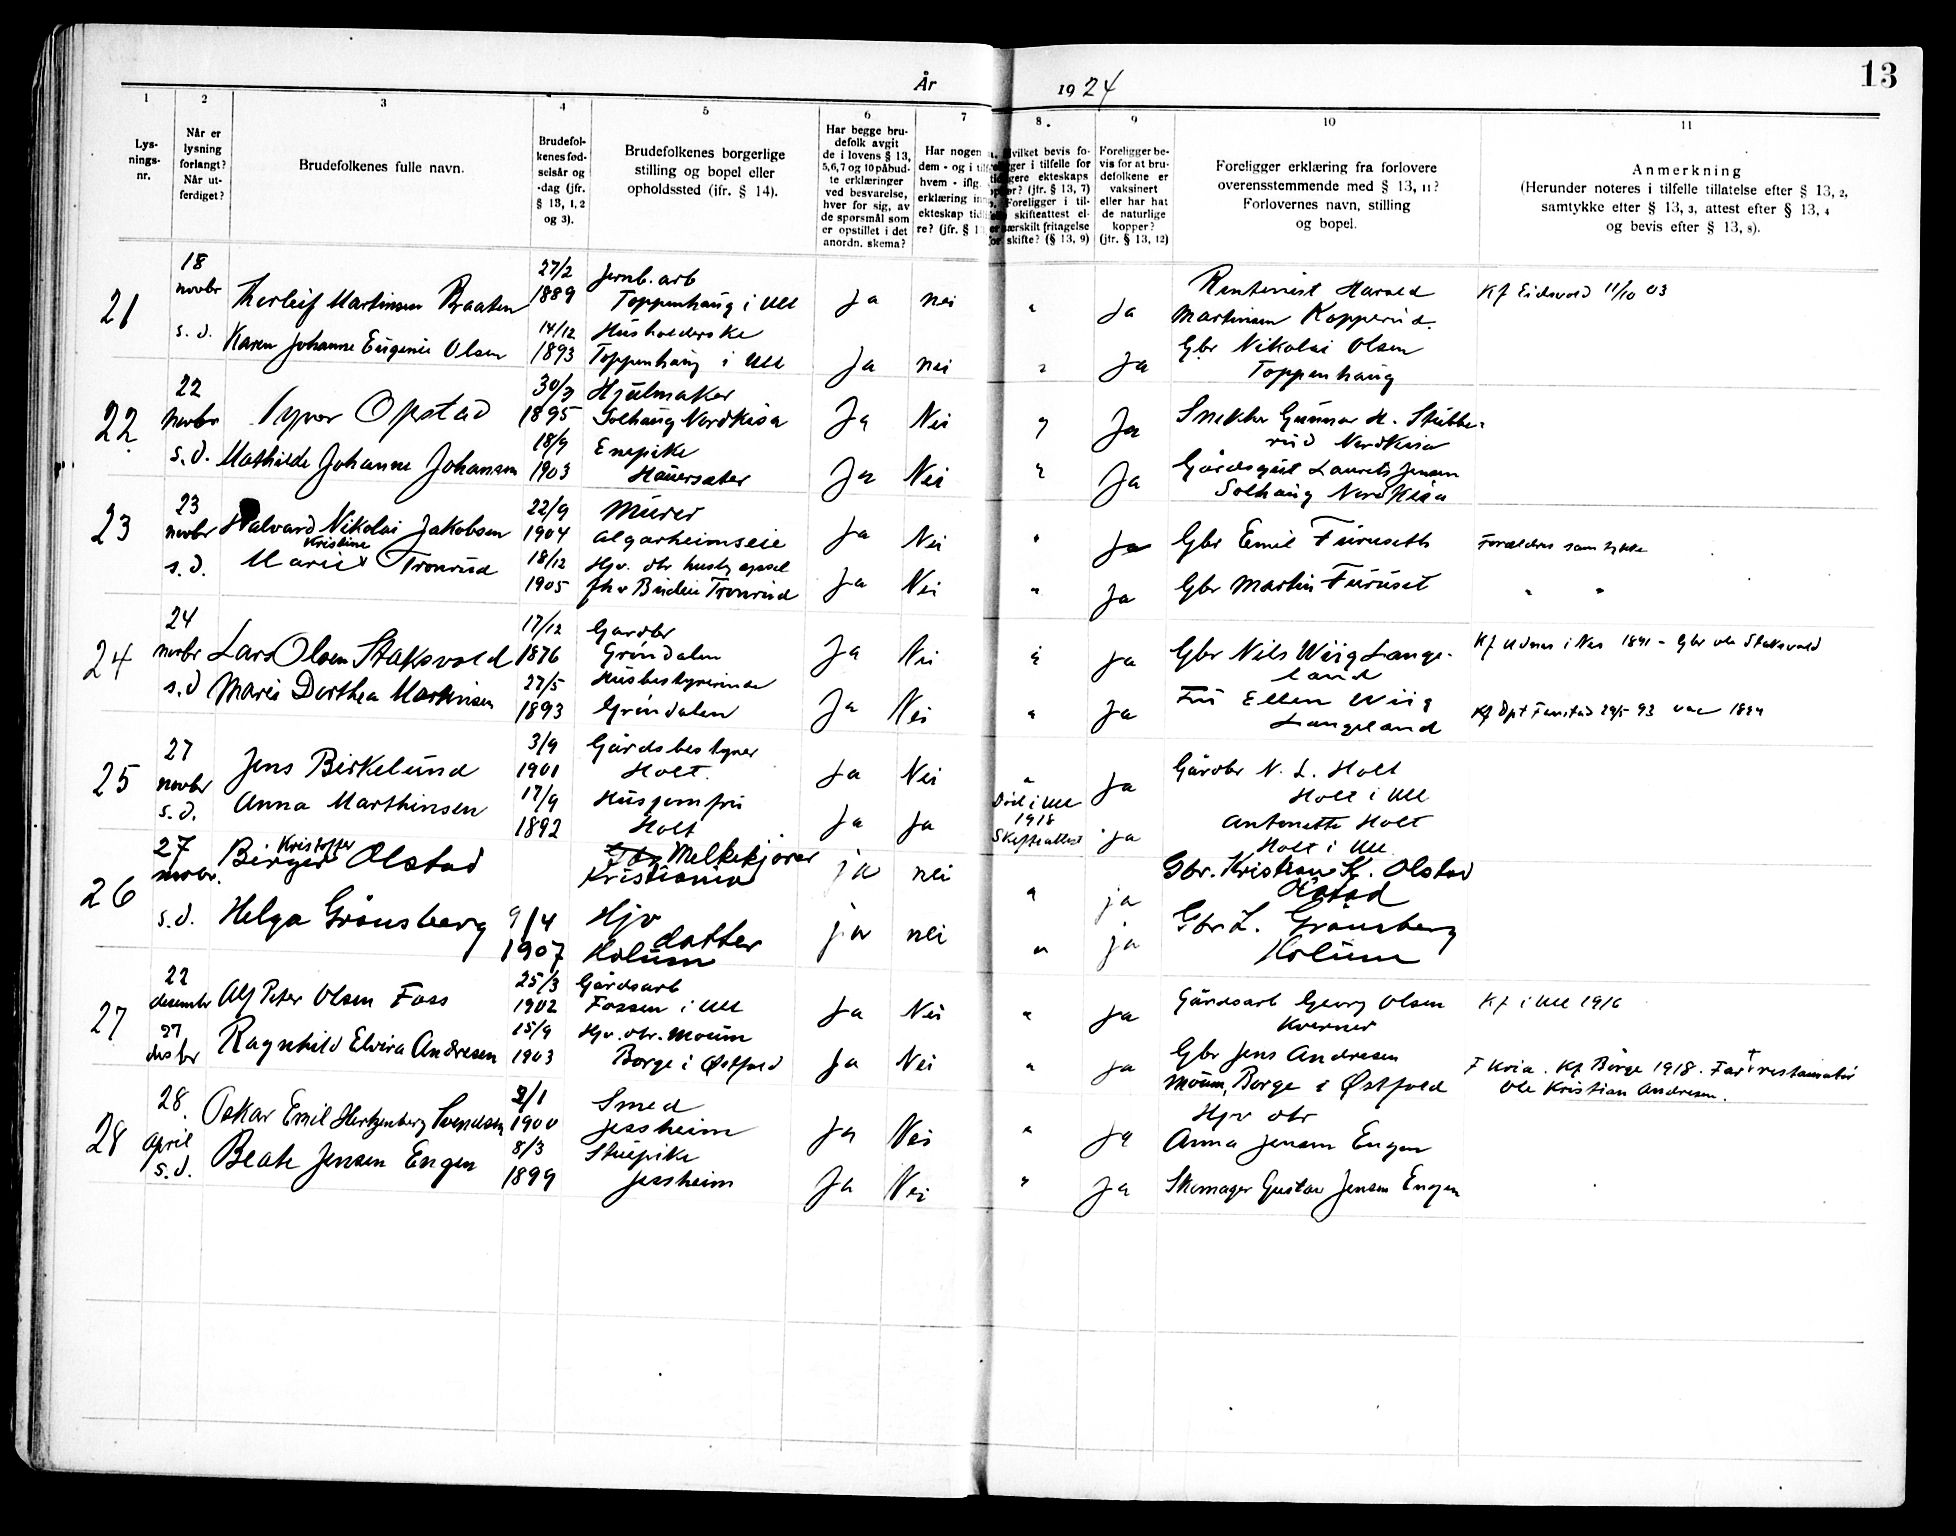 13
År 1924
1 2 3 4 5 6 7 8. 9 10 11
Lys-
nings-
nr.
Når er
lysning
forlangt?
Når ut-
ferdiget?
Brudefolkenes fulle navn.
Brudefol-
kenes fød-
selsår og
-dag (jfr.
§ 13, 1, 2
og 3).
Brudefolkenes borgerlige
stilling og bopel eller
opholdssted (jfr. § 14).
Har begge bru-
defolk avgit
de i lovens § 13,
5,6,7 og 10 påbud-
te erklæringer
ved besvarelse,
hver for sig, av
de spørsmål som
er opstillet i det
anordn. skema?
Har nogen
dem - og i
hvem - iflg.
erklæring
ekteskap
re? (jfr. §
hvilket bevis fo-
ligger i tilfelle for
tidligere ekteskaps
? (jfr. § 13, 7)
Foreligger i til-
skifteattest el-
særskilt fritagelse
for skifte? (§ 13, 9)
Foreligger be-
vis for at bru-
defolkene er
vaksinert
eller har hat
de naturlige
kopper?
(jfr. § 13, 12)
Foreligger erklæring fra forlovere
overensstemmende med § 13, 11?
Forlovernes navn, stilling
og bopel.
Anmerkning
(Herunder noteres i tilfelle tillatelse efter § 13, 2,
samtykke efter § 13, 3, attest efter § 13, 4
og bevis efter § 13, 8).
21
18
novbr
Thorleif Martinsen Braaten
27/2
1889
Jernb.arb
Toppenhaug i Ull
Ja nei " Ja
Rentenist Harald
Martinsen Kopperud.
Kf Eidsvold 11/10 03
s. d.
Karen Johanne Eugenie Olsen
14/12
1893
Husholderske
Toppenhaug i Ull
Ja nei " Ja
Gbr Nikolai Olsen
Toppenhaug
22
22
novbr
Opstad
30/3
1895
Hjulmaker
Solhaug Nordkisa
Ja Nei " Ja
Snekker Gunnar H. Stubbe-
rud Nordkisa
s. d.
Mathilde Johanne Johansen
18/9
1903
Enepike
Hauersæter
Ja Nei " Ja
Laurits Jensen
Solhaug Nordkisa
23
23
novbr
Halvard Nikolai Jakobsen
22/9
1904
Murer
Algarheimseie
Ja Nei " Ja
Gbr Emil Furuseth
Forældres samtykke
s. d.
Kristine
Marie Tronrud
18/12
1905
Hjv. dtr
Tronrud
Ja Nei " Ja
Gbr Martin Furuset
" "
24
24
novbr
Lars Olsen Staksvold
17/12
1876
Gardbr
Grøndalen
Ja Nei " Ja
Gbr Nils Wiig Lange-
land
Kf Udnes i Nes 1891 - Gbr Ole Staksvold
s. d
Marie Dorthea Martinsen
27/5
1893
Husbestyrerinde
Grøndalen
Ja Nei " Ja
Fru Ellen Wiig
Langeland
25
27
novbr
Jens Birkelund
3/9
1901
Gårdsbestyrer
Holt.
Ja Nei " Ja
Gårdbr N. L. Holt
Holt i Ull
s. d.
Anna Marthinsen
17/9
1892
Husjomfru
Holt
Ja Ja
Død i Ull
1918
Skifteattest
Ja
Antonette Holt
Holt i Ull
26
27
novbr.
Kristoffer
Birger Olstad
Melkekjører
Kristiania
ja nei " ja
Gbr. Kristian K. Olstad
Olstad
s. d.
Helga Grønsberg
9/4
1907
Hjv
datter
Kolum
ja nei " ja
Gbr. L. Grønsberg
Kolum
27
22
desembr
Alf Peter Olsen Foss
25/3
1902
Gårdsarb
Fossen i Ull
Ja Nei " Ja
Gårdsarb Georg Olsen
Kverner
Kf i Ull 1916
27
desbr
Ragnhild Elvira Andresen
15/9
1903
Hjv. dtr. Moum
Borge i Østfold
Ja Nei " Ja
Gbr Jens Andresen
Moum, Borge i Østfold
F Kria. Kf Borge 1918. Far † restauratør
Ole Kristian Andresen.
28
28.
april
Oskar Emil Hertzenberg Svendsen
2/1
1900
Smed
Jessheim
Ja Nei " Ja
Hjv dtr
Anna Jensen Engen
s. d.
Beate Jensen Engen
8/3
1899
Stuepike
Jessheim
Ja Nei " Ja
Skomager Gustav Jensen Engen